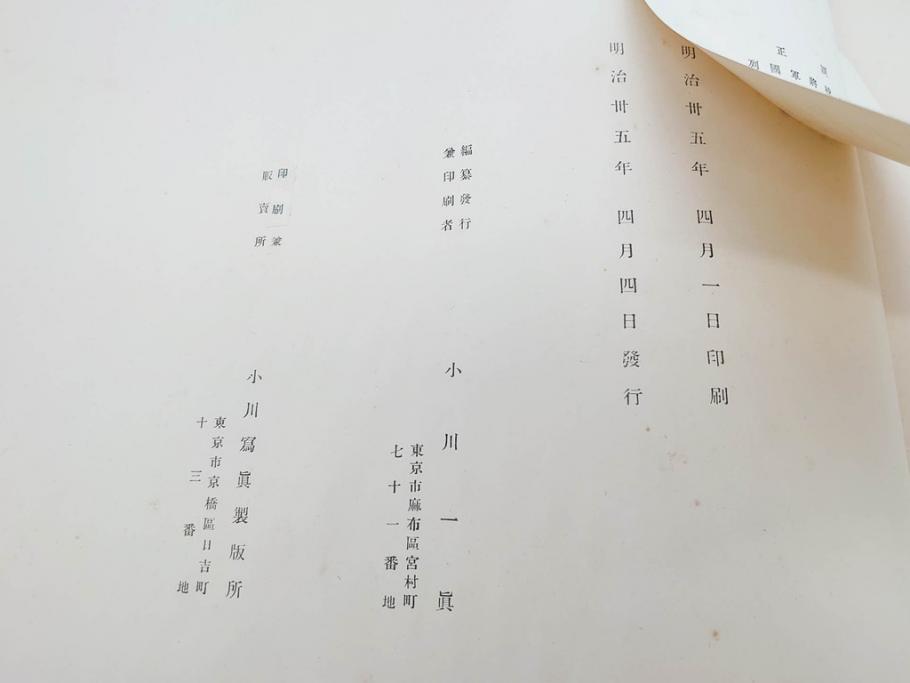 明治卅五年四月一日印刷
明治卅五年四月四日發行
編纂發行
兼印刷者
小川一眞
東京市麻布區宮村町
七十一番地
印刷兼
販賣所
小川寫眞製版所
東京市京橋區日吉町
十三番地
正
將軍國列